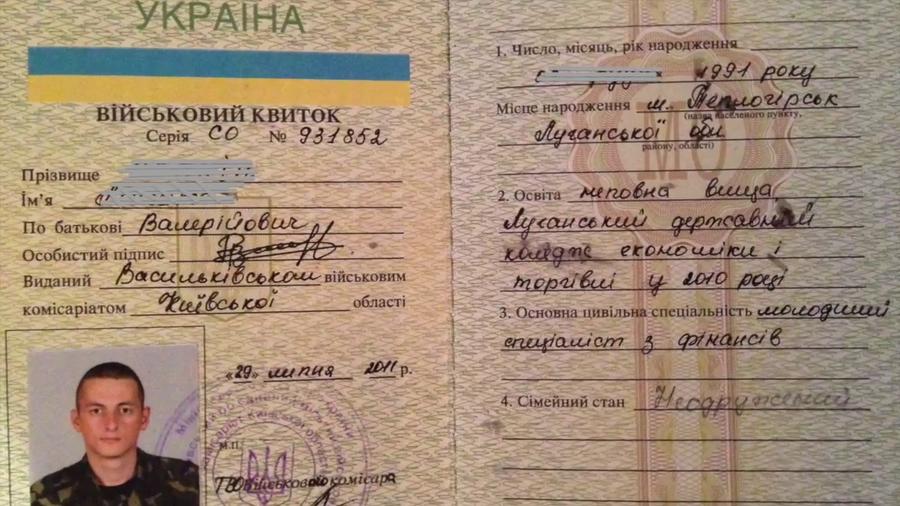 УКРАЇНА
ВІЙСЬКОВИЙ КВИТОК
Серія СО № 931852
Прізвище
Ім'я
По батькові Валерійович
Особистий підпис
Виданий Васильківським військовим
комісаріатом Київської області
«29» липня 2011 р.
М.П.
ТВО Військового комісара
1. Число, місяць, рік народження
1991 року
Місце народження м. Теплогірськ
(назва населеного пункту,
Луганської обл
району, області)
2. Освіта неповна вища
Луганський державний
коледж економіки і
торгівлі у 2010 році
3. Основна цивільна спеціальність молодший
спеціаліст з фінансів
4. Сімейний стан Неодружений